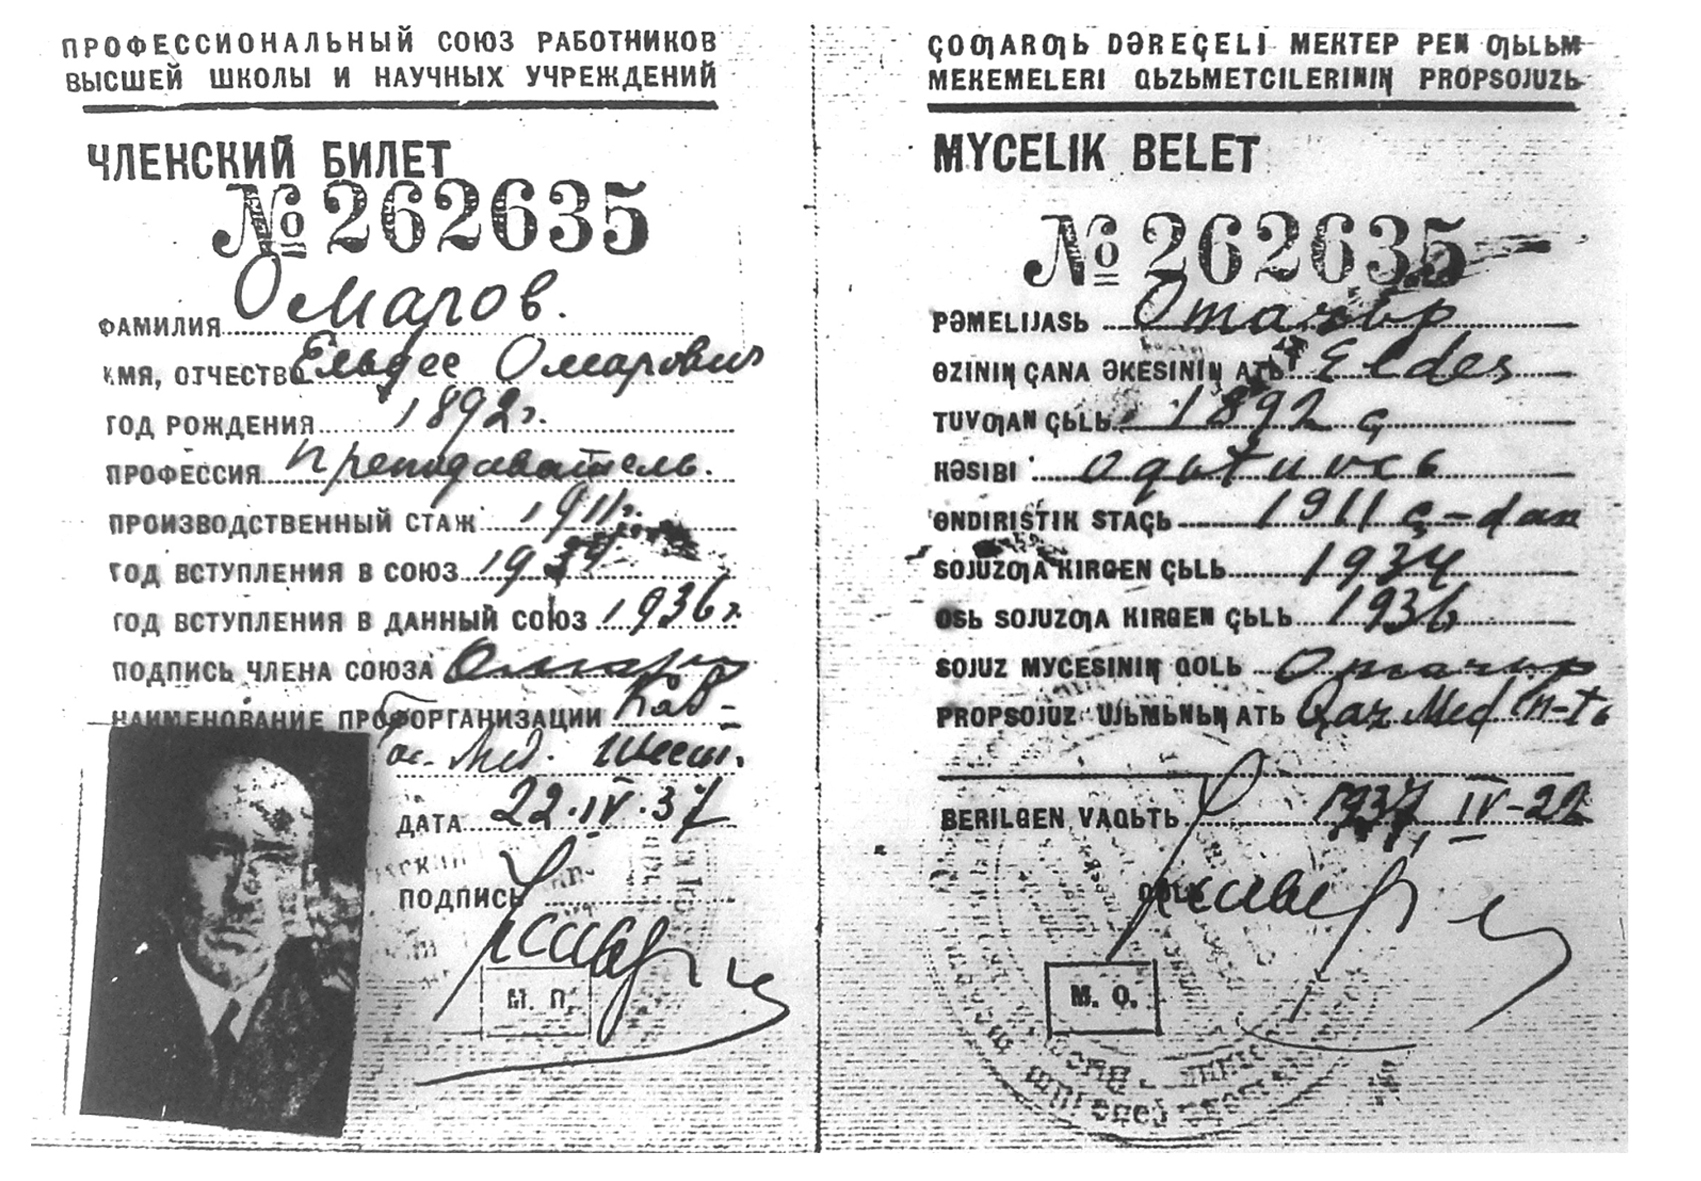 ПРОФЕССИОНАЛЬНЫЙ СОЮЗ РАБОТНИКОВ
ВЫСШЕЙ ШКОЛЫ И НАУЧНЫХ УЧРЕЖДЕНИЙ
ЧЛЕНСКИЙ БИЛЕТ
№ 262635
ФАМИЛИЯ Омаров.
ИМЯ, ОТЧЕСТВО Ельдес Омарович
ГОД РОЖДЕНИЯ 1892 г.
ПРОФЕССИЯ преподаватель.
ПРОИЗВОДСТВЕННЫЙ СТАЖ 1911 г.
ГОД ВСТУПЛЕНИЯ В СОЮЗ 1934
ГОД ВСТУПЛЕНИЯ В ДАННЫЙ СОЮЗ 1936 г.
ПОДПИСЬ ЧЛЕНА СОЮЗА
НАИМЕНОВАНИЕ ПРОФОРГАНИЗАЦИИ
Мед.
ДАТА 22.IV.37
ПОДПИСЬ
М. П.
ÇOƢARƢЬ DƏREÇELI MEKTEP PEN ƢЬLЬM
MEKEMELERI QЬZЬMETCILERINIꞐ PROPSOJUZЬ
MYCELIK BELET
№ 262635
PƏMELIJASЬ Omarьp
ɵZINIꞐ ÇANA ƏKESINIꞐ ATЬ Eldes
TUVƢAN ÇЬLЬ 1892 ç
KƏSIBI oqьtuvcь
ɵNDIRISTIK STAÇЬ 1911 ç-dan
SOJUZƢA KIRGEN ÇЬLЬ 1934
OSЬ SOJUZƢA KIRGEN ÇЬLЬ 1936
SOJUZ MYCESINIꞐ QOLЬ Omarьp
PROPSOJUZ UJЬMЬNЬꞐ ATЬ Qaz Med in-tь
BERILGEN VAQЬTЬ 1937 IV-22
QOLЬ
M. O.